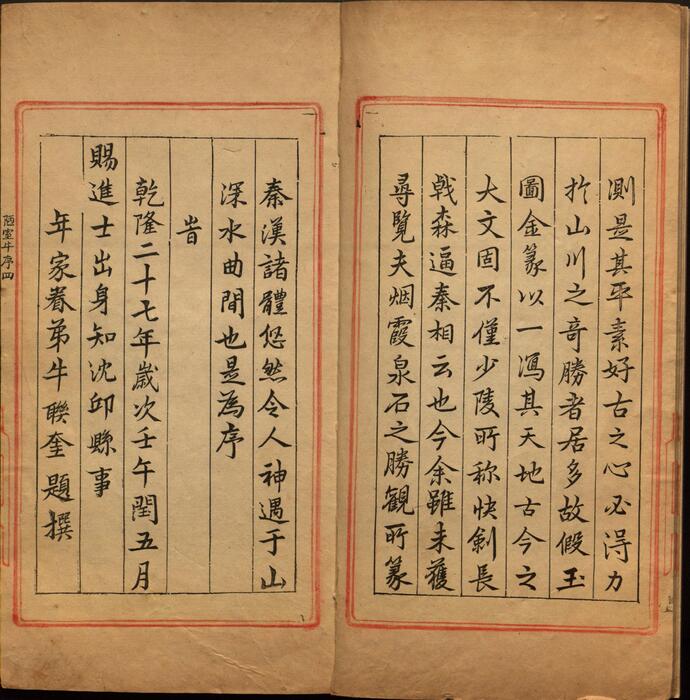 測是其平素好古之心必淂力
扵山川之竒勝者居多故假玉
圖金篆以一寫其天地古今之
大文固不僅少陵所称快劍長
戟森逼秦相云也今余雖未獲
尋覽夫烟霞泉石之勝観所篆
秦漢諸體悠然令人神遇于山
深水曲間也是為序
旹
乾隆二十七年歲次壬午閏五月
賜進士出身知沈邱縣事
年家眷弟牛聯奎題撰
陋室牛序四